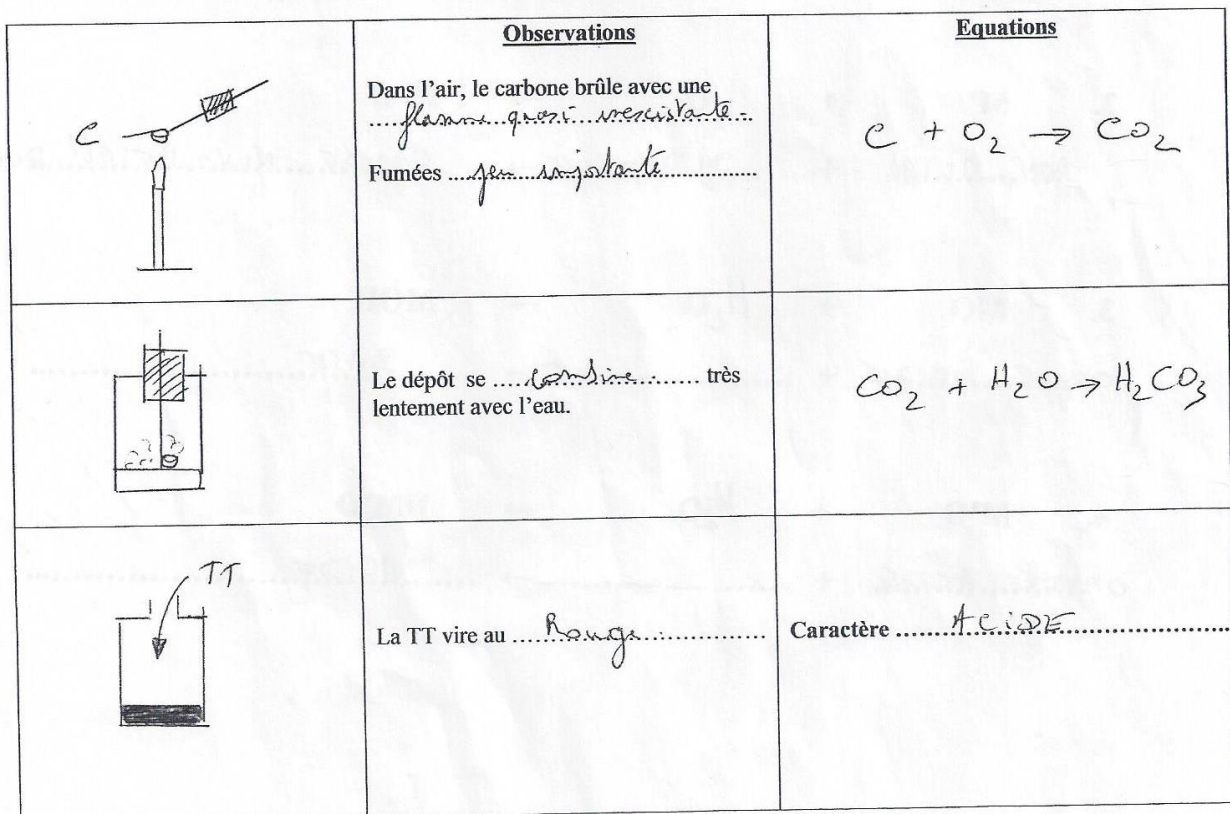 Observations
Equations
C
Dans l'air, le carbone brûle avec une
flamme quasi inexistante.
Fumées ... peu importante ...
C + O₂ → CO₂
Le dépôt se ... combine ... très
lentement avec l'eau.
CO₂ + H₂O → H₂CO₃
TT
La TT vire au ... Rouge ...
Caractère ... ACIDE ...